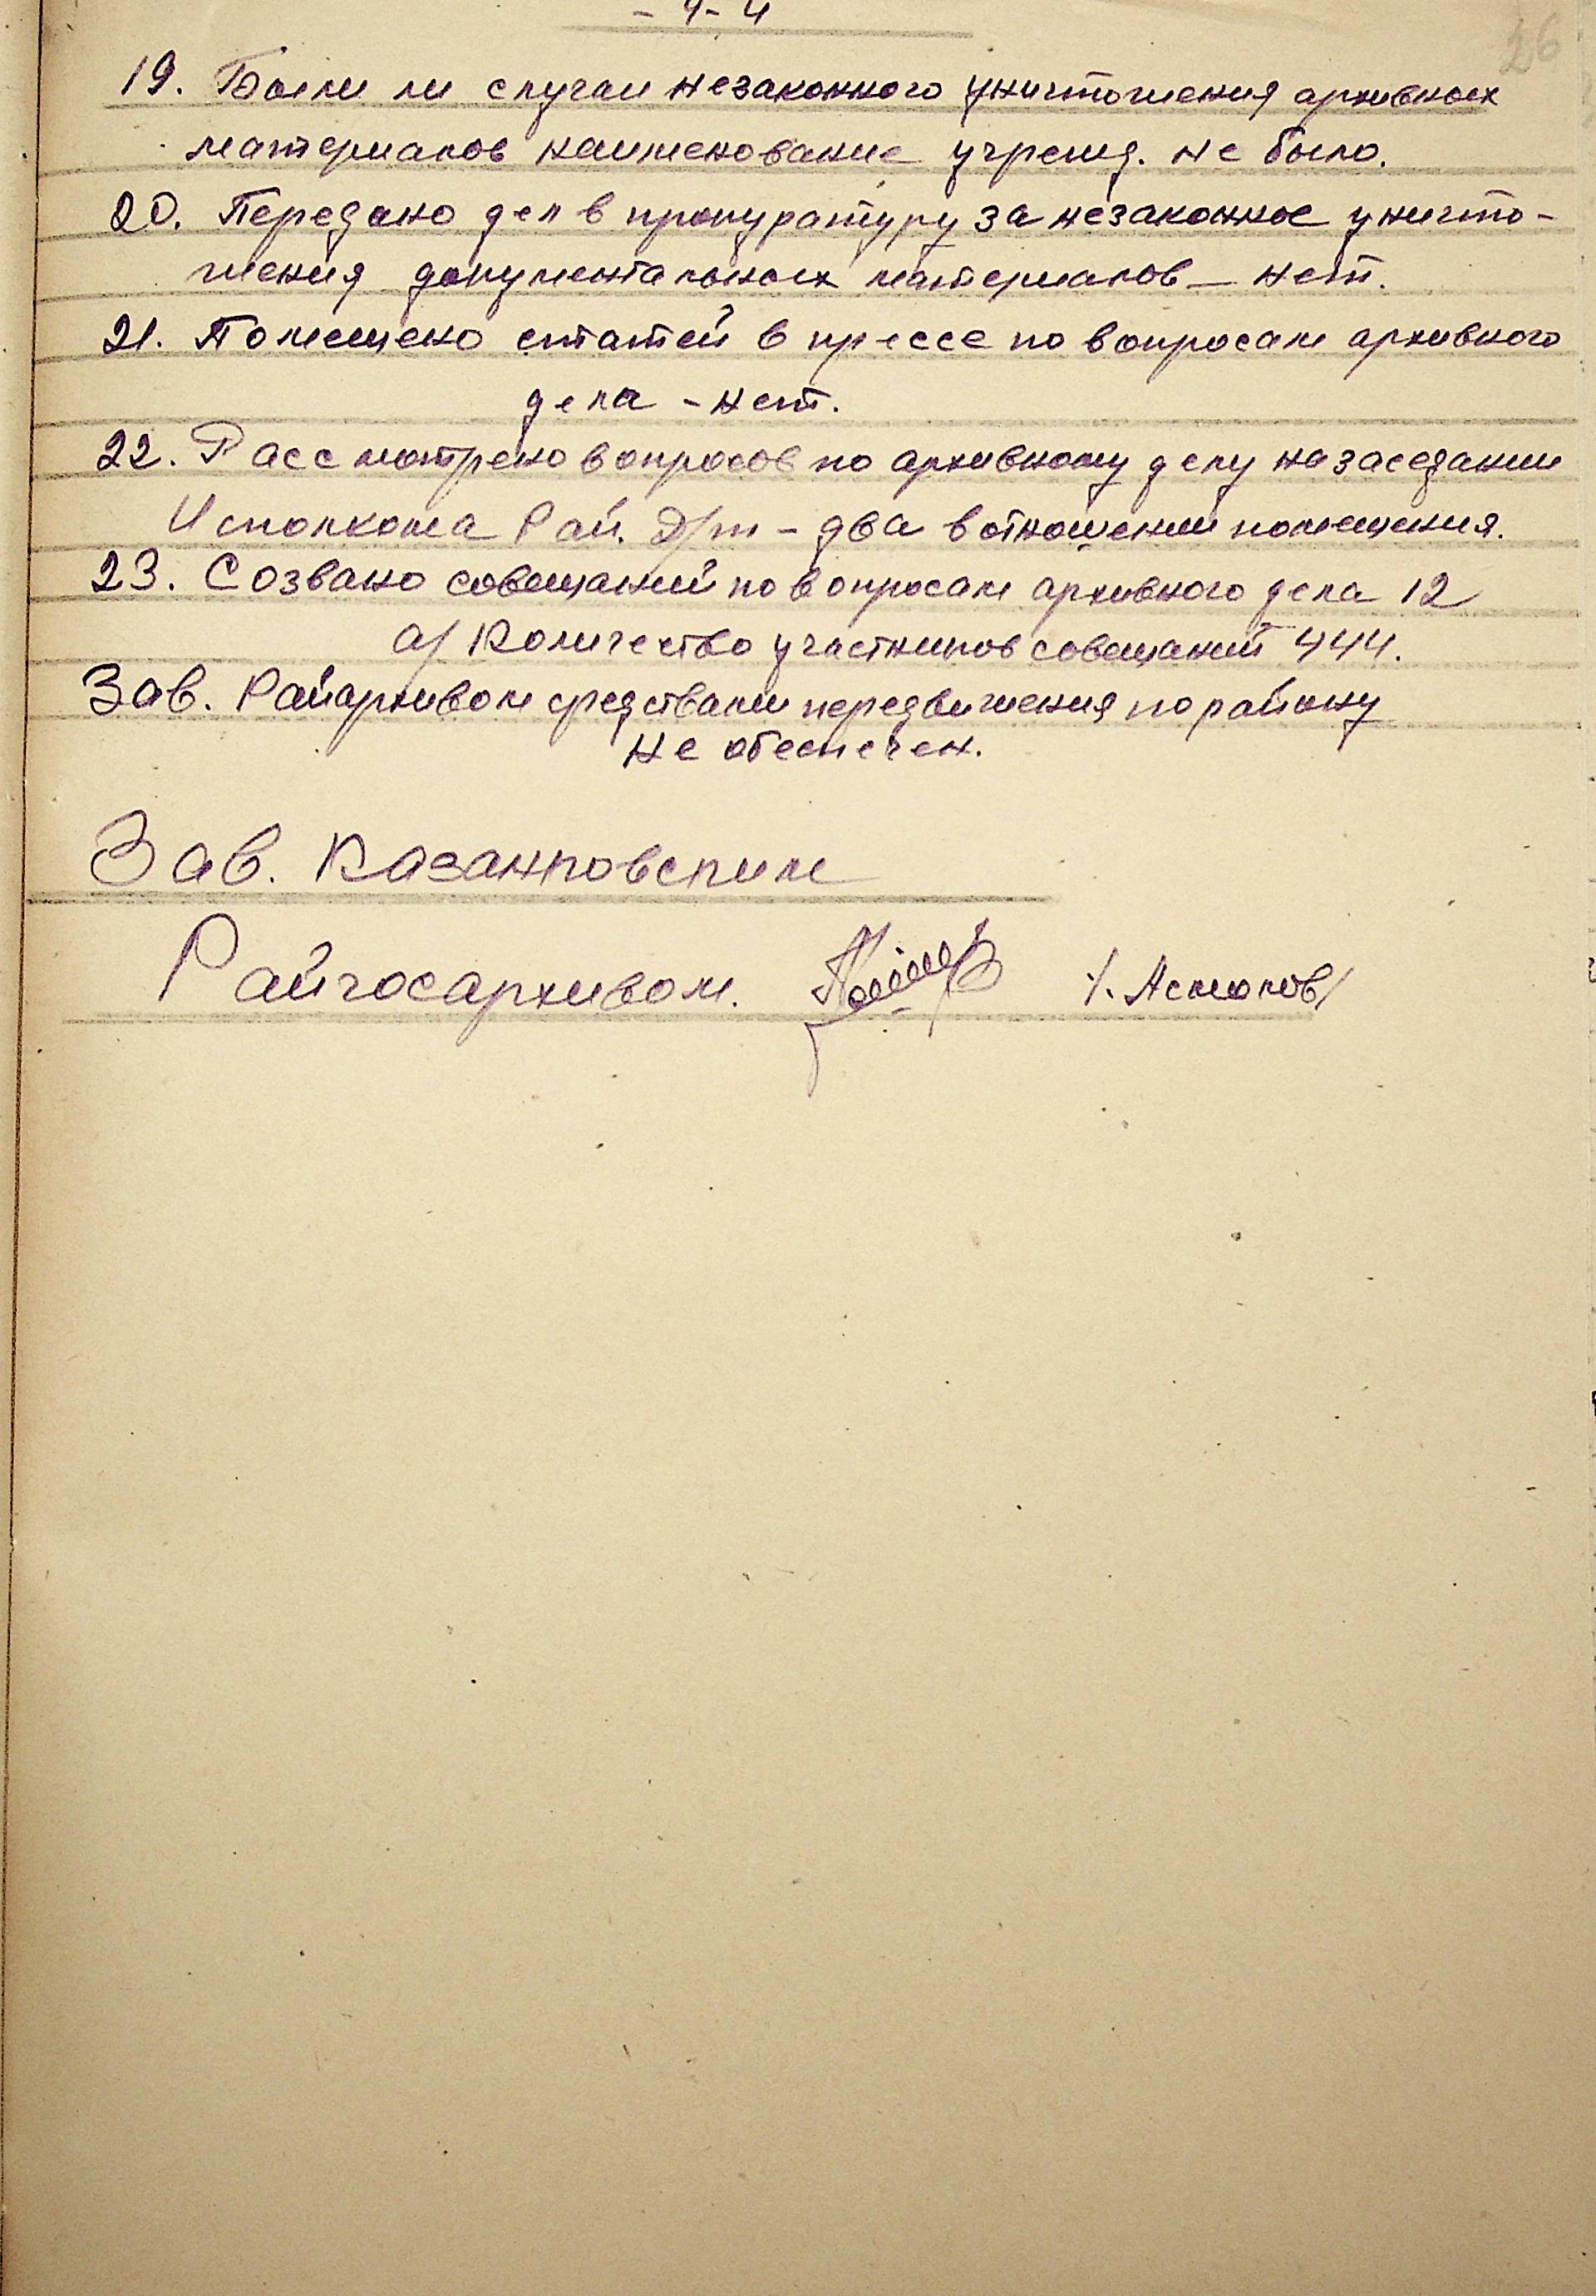 - 4 - 4
26
19. Были ли случаи незаконного уничтожения архивных
материалов наименование учрежд. не было.
20. Передано дел в прокуратуру за незаконное уничто-
жения документальных материалов – нет.
21. Помещено статей в прессе по вопросам архивного
дела - нет.
22. Рассмотрено вопросов по архивному делу на заседании
Исполкома Рай. Д/т - два в отношении помещения.
23. Созвано совещаний по вопросам архивного дела 12
а/ Количество участников совещаний 444.
Зав. Райархивом средствами передвижения по району
не обеспечен.
Зав. Казанковским
Райгосархивом. /. Асмолов/